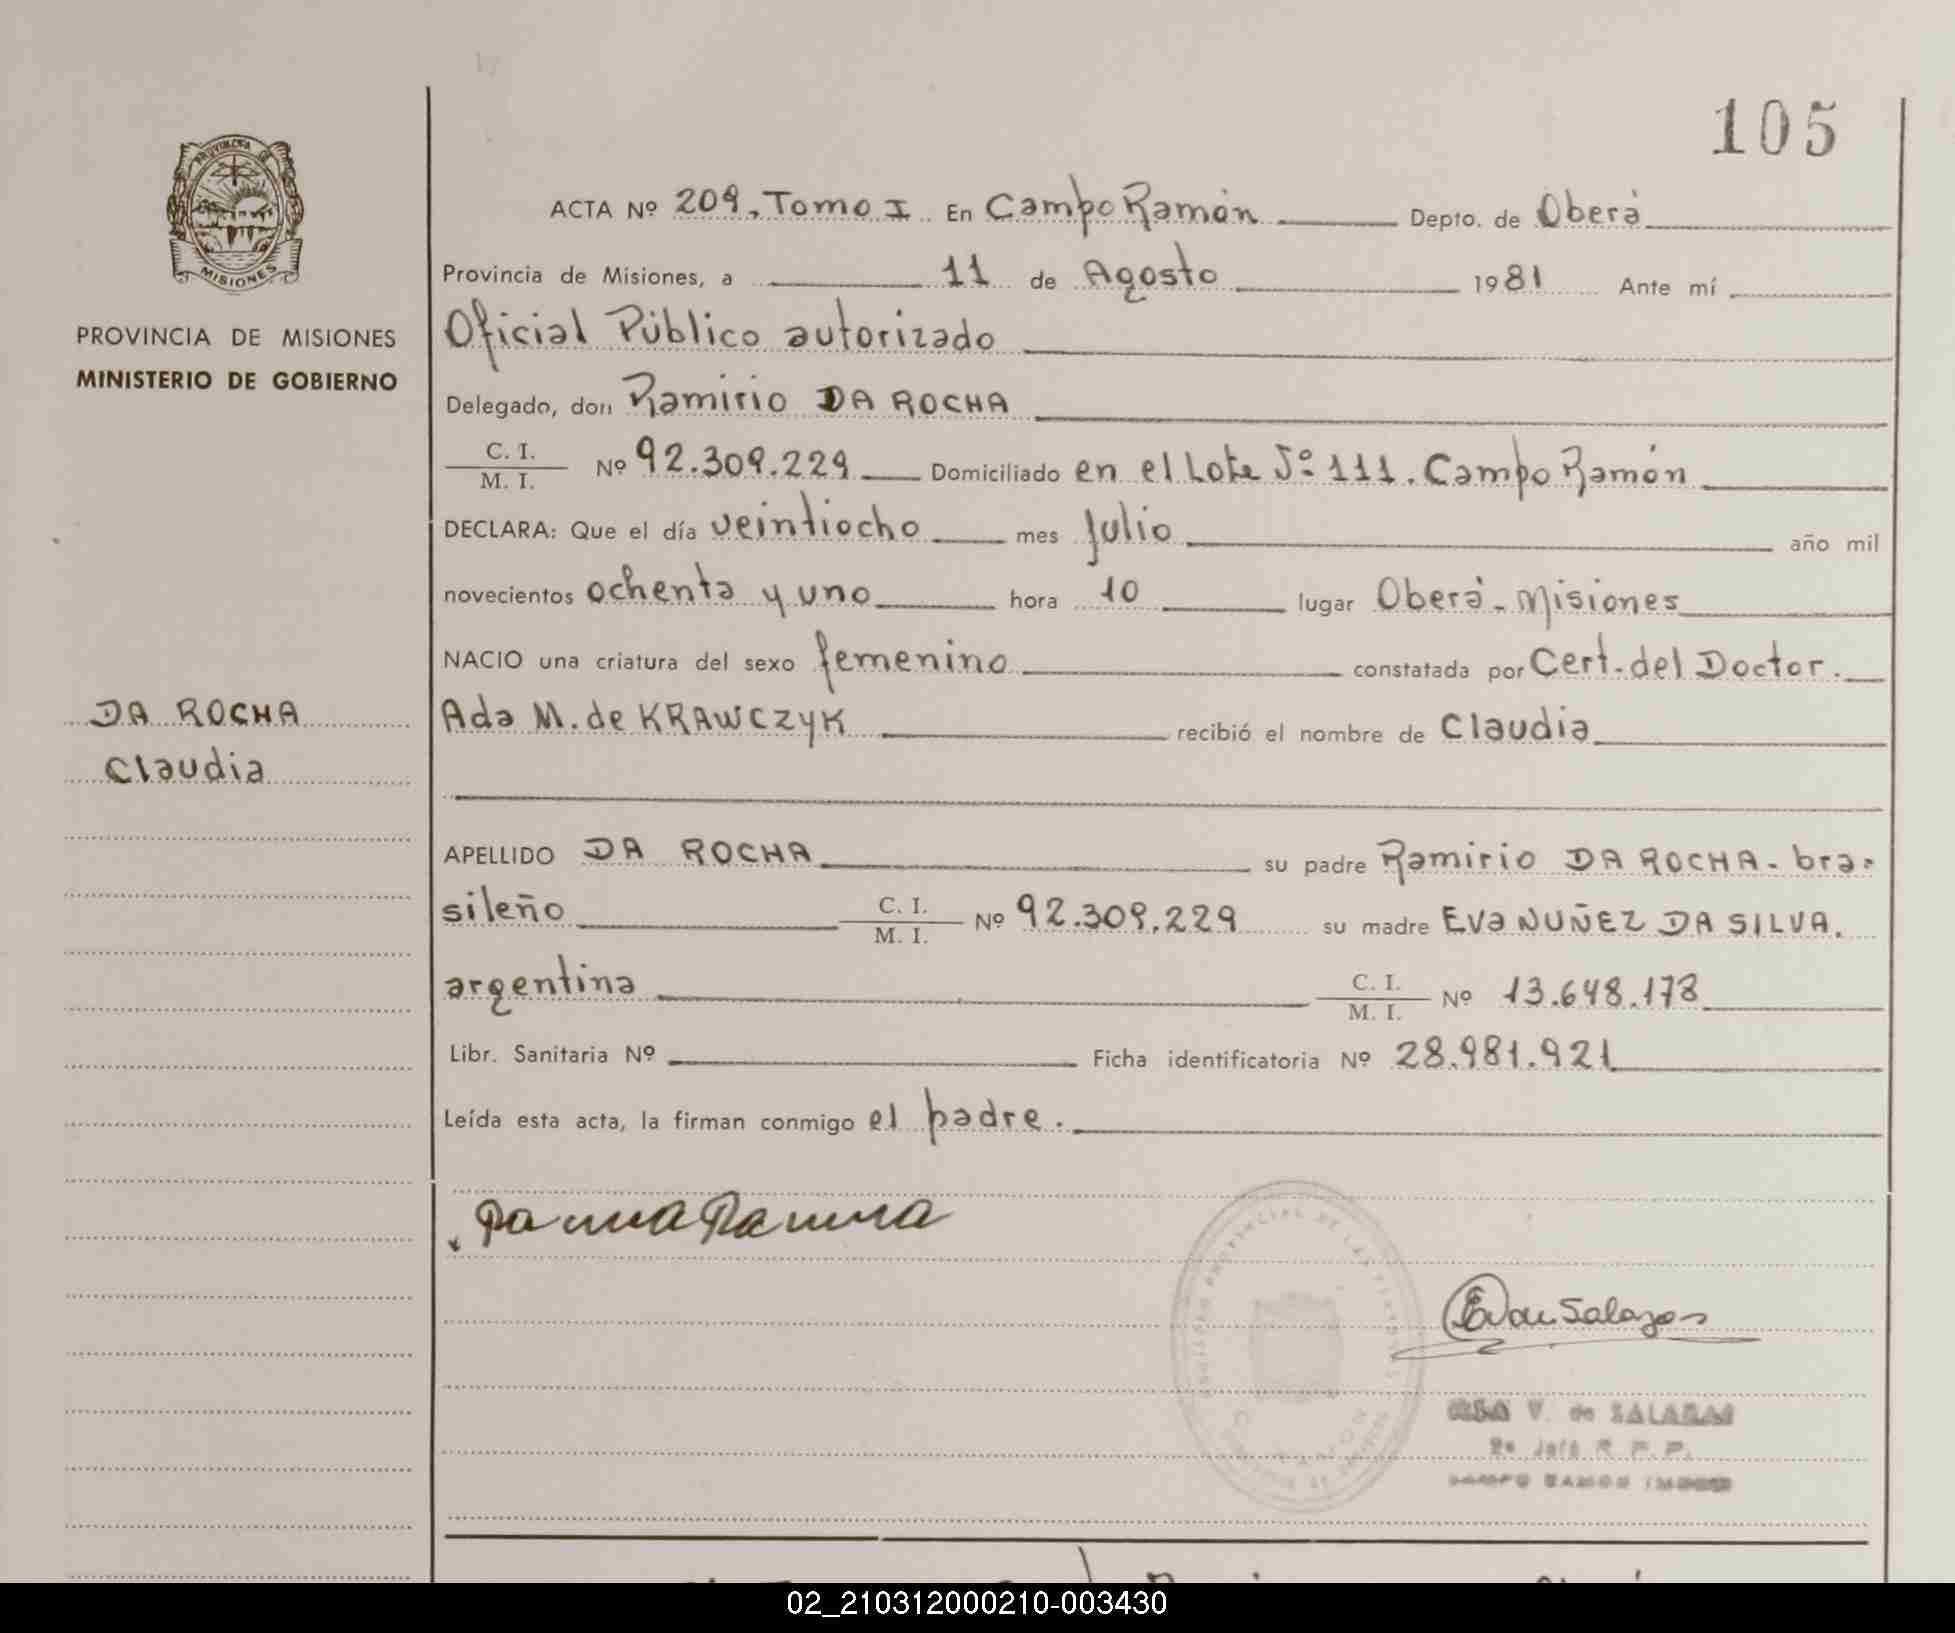 105
ACTA Nº 209, Tomo I En Campo Ramón Depto. de Oberá
Provincia de Misiones, a 11 de Agosto 1981 Ante mí
Oficial Público autorizado
PROVINCIA DE MISIONES
MINISTERIO DE GOBIERNO
Delegado, don Ramirio DA ROCHA
C. I.
M. I. Nº 92.309.229 Domiciliado en el Lote Nº 111. Campo Ramón
DECLARA: Que el día veintiocho mes Julio año mil
novecientos ochenta y uno hora 10 lugar Oberá - Misiones
NACIO una criatura del sexo femenino constatada por Cert. del Doctor.
DA ROCHA
Claudia
Ada M. de KRAWCZYK recibió el nombre de Claudia
APELLIDO DA ROCHA su padre Ramirio DA ROCHA - bra-
sileño C. I.
M. I. Nº 92.309.229 su madre Eva NUÑEZ DA SILVA.
argentina C. I.
M. I. Nº 13.648.178
Libr. Sanitaria Nº Ficha identificatoria Nº 28.981.921
Leída esta acta, la firman conmigo el padre.
V. de SALAZAR
2º Jefe R. P. P.
CAMPO RAMON
02_210312000210-003430